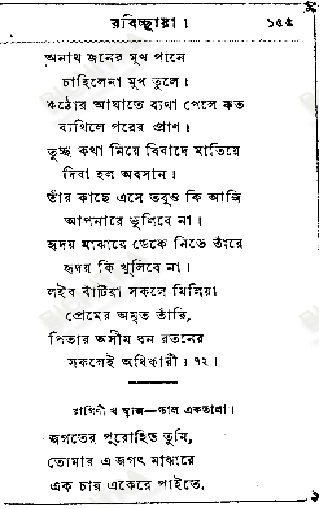 রবিচ্ছায়া।
অনাথ জনের মুখ পানে
চাহিলেনা মুখ তুলে।
কঠোর আঘাতে ব্যথা পেলে কত
ব্যথিলে পরের প্রাণ।
তুচ্ছ কথা নিয়ে বিবাদে মাতিয়ে
দিবা হল অবসান।
তাঁর কাছে এসে তবুও কি আজি
আপনারে ভুলিবে না।
হৃদয় মাঝারে ডেকে নিতে তাঁরে
হৃদয় কি খুলিবে না।
লইব বাঁটিয়া সকলে মিলিয়া
প্রেমের অমৃত তাঁরি,
পিতার অসীম ধন রতনের
সকলেই অধিকারী। ৭২।
রাগিণী খাম্বাজ—তাল একতালা।
জগতের পুরোহিত তুমি,
তোমার এ জগৎ মাঝারে
এক চায় একেরে পাইতে,